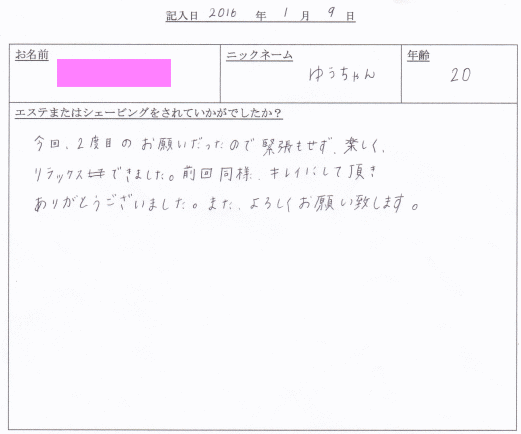 記入日 2016 年 1 月 9 日
お名前 ニックネーム 年齢
ゆうちゃん 20
エステまたはシェービングをされていかがでしたか？
今回、2度目のお願いだったので緊張もせず、楽しく、
リラックスできました。前回同様、キレイにして頂き
ありがとうございました。また、よろしくお願い致します。